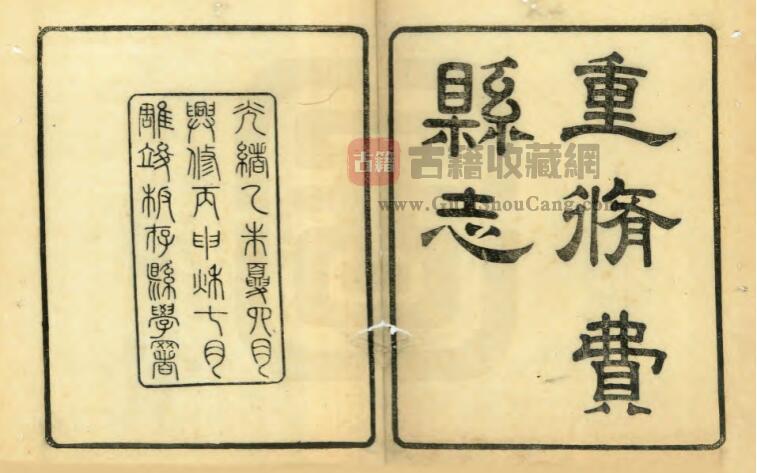 重脩費
縣志
光緒乙未夏六月
興修丙申秌七月
雕竣板存縣學署
古籍
古籍收藏網
www.GuJiShouCang.com